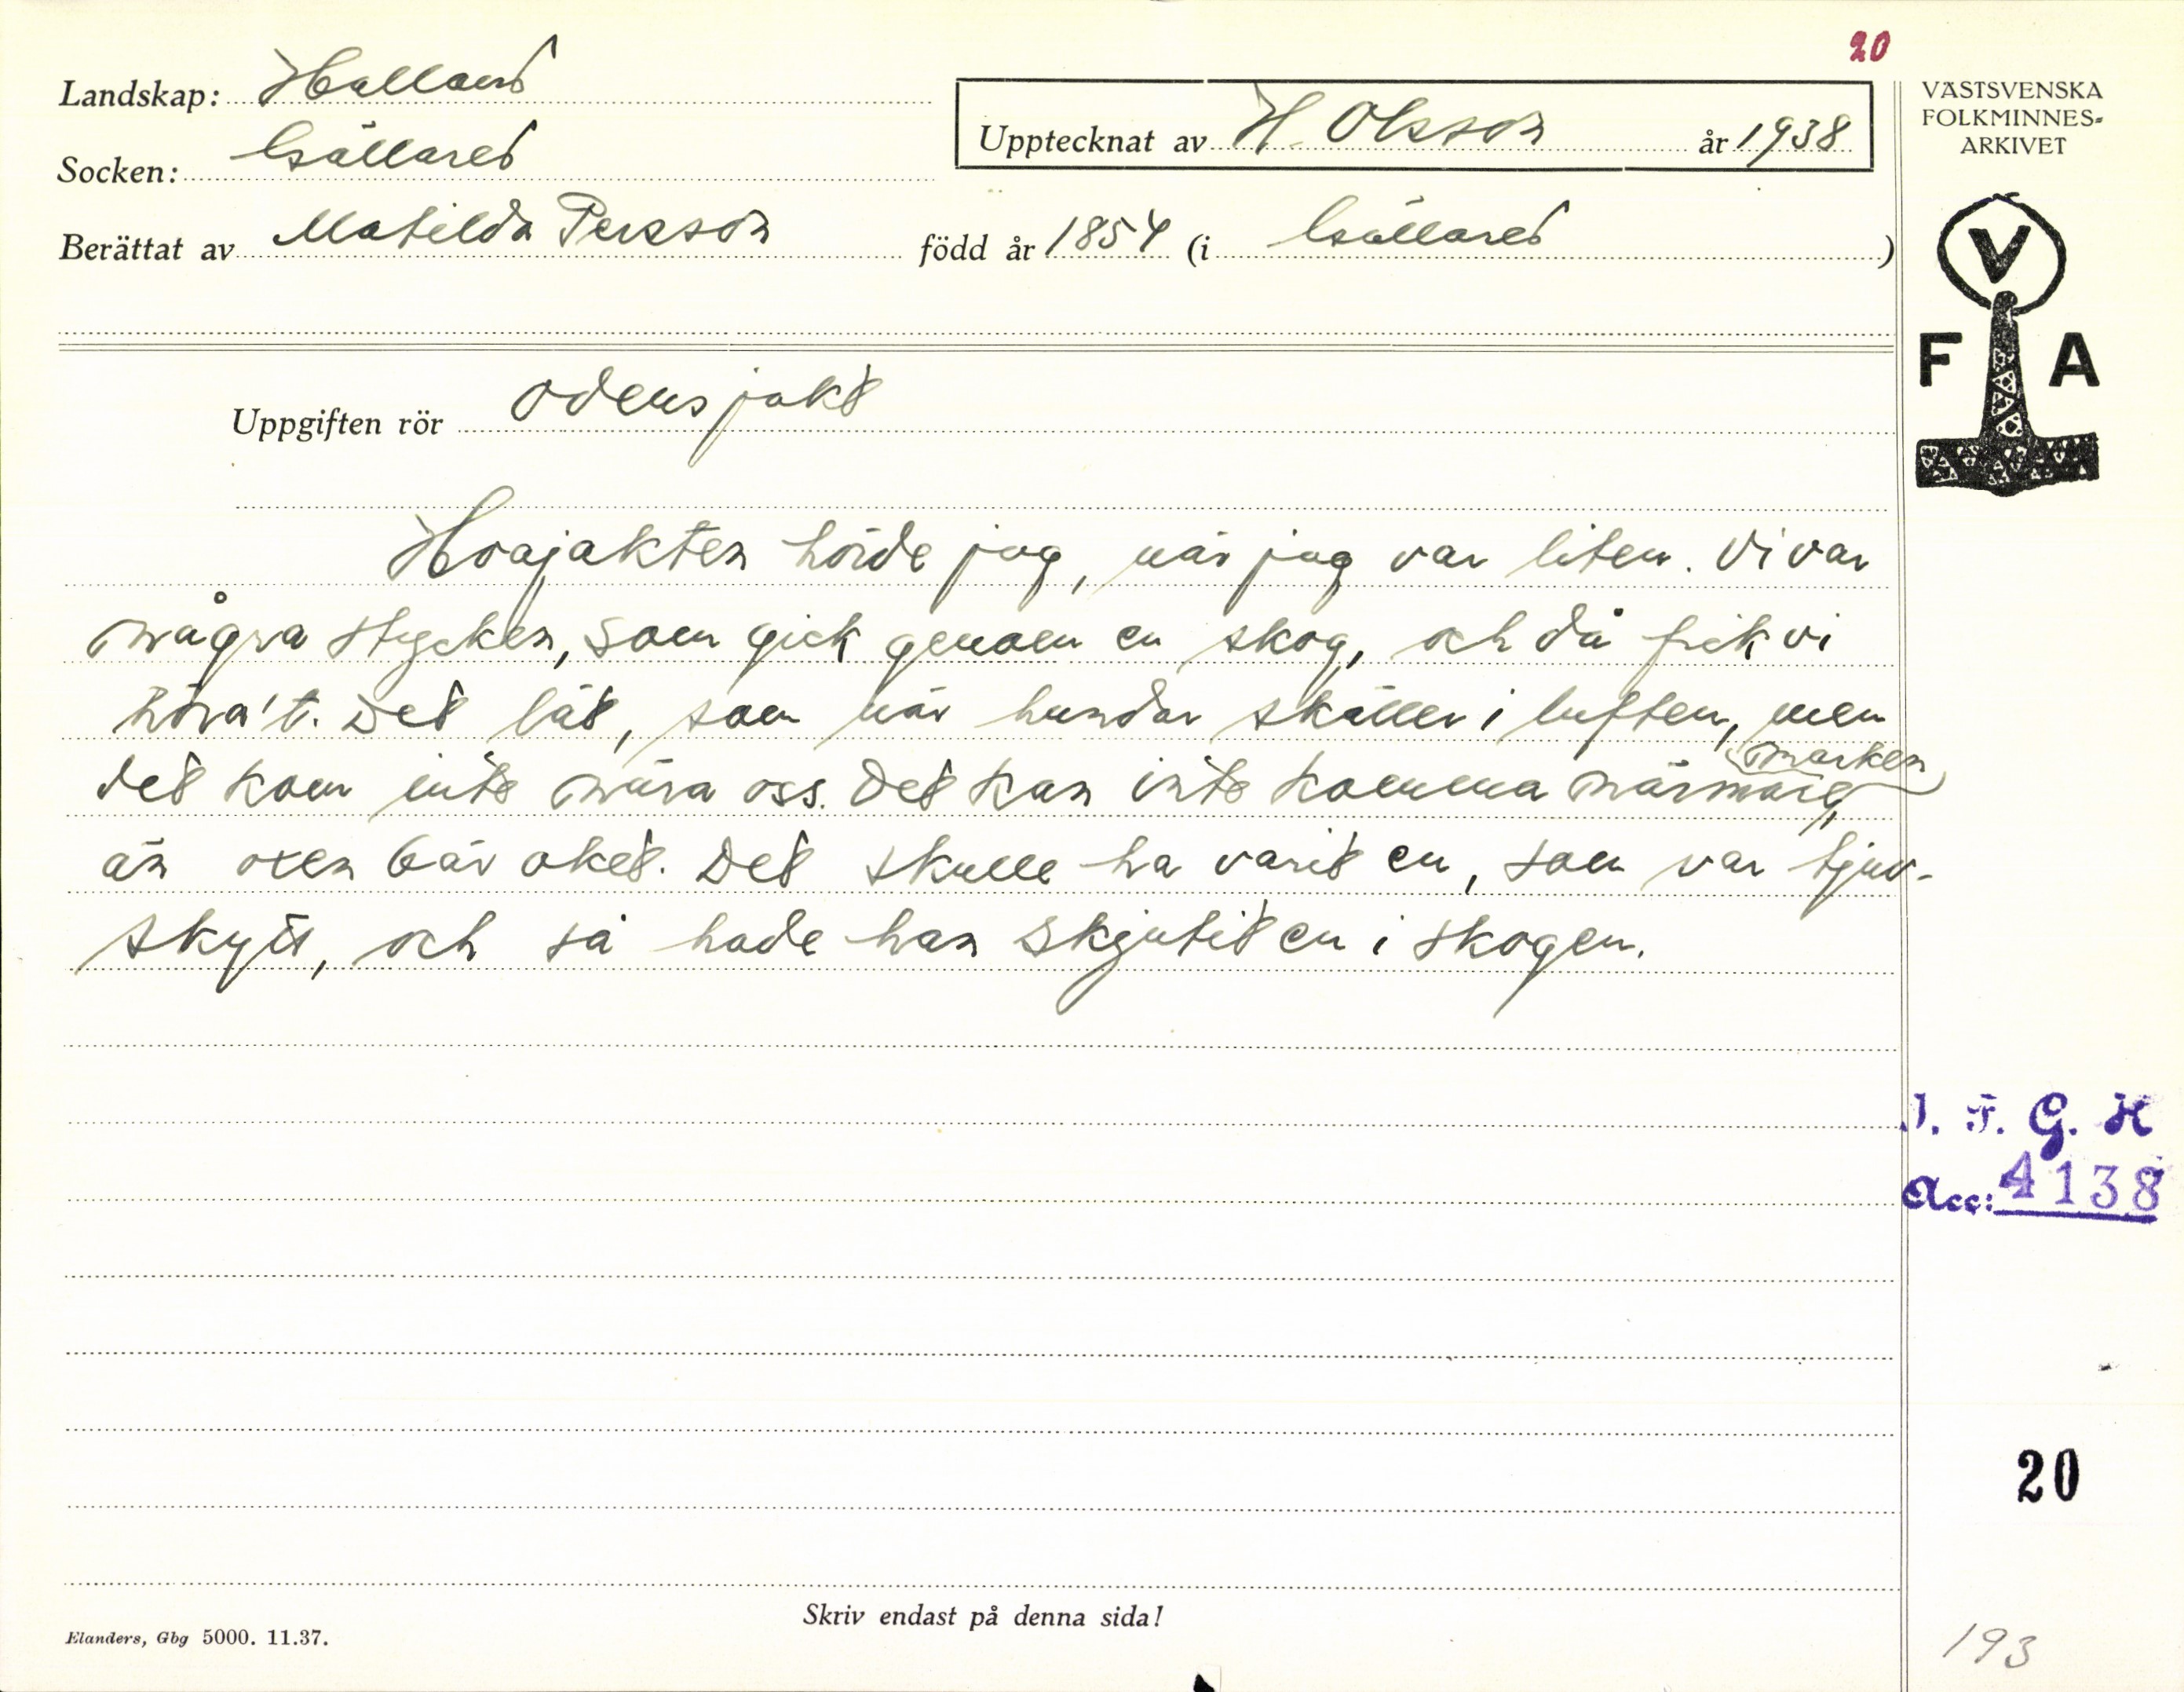 20
Landskap: Halland
Socken: Gällared
Upptecknat av H. Olsson år 1938
Berättat av Matilda Persson född år 1854 (i Gällared)
VÄSTSVENSKA
FOLKMINNES-
ARKIVET
V
F A
Uppgiften rör Odens jakt
Hoajakten hörde jag, när jag var liten. Vi var
några stycken, som gick genom en skog, och då fick vi
höra't. Det lät, som när hundar skäller i luften, men
det kom inte nära oss. Det kan inte komma närmare, marken
än oxen bär oket. Det skulle ha varit en, som var tjuv-
skytt, och så hade han skjutit en i skogen.
I. F. G. H
Acc: 4138
20
Skriv endast på denna sida!
Elanders, Gbg 5000. 11.37.
193